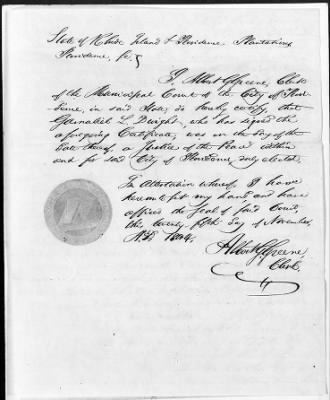 State of Rhode Island & Providence Plantations
Providence, Sc.
I, Albert G. Greene, Clerk
of the Municipal Court of the City of Prov-
idence, in said State, do hereby certify, that
L. Dwight, who has signed the
aforegoing Certificate, was on the day of the
date thereof, a Justice of the Peace within
and for said City of Providence duly elected.
In Attestation whereof, I have
hereunto put my hand and have
affixed the Seal of said Court,
this twenty fifth day of November,
A.D. 1844.
Albert G. Greene,
Clerk.